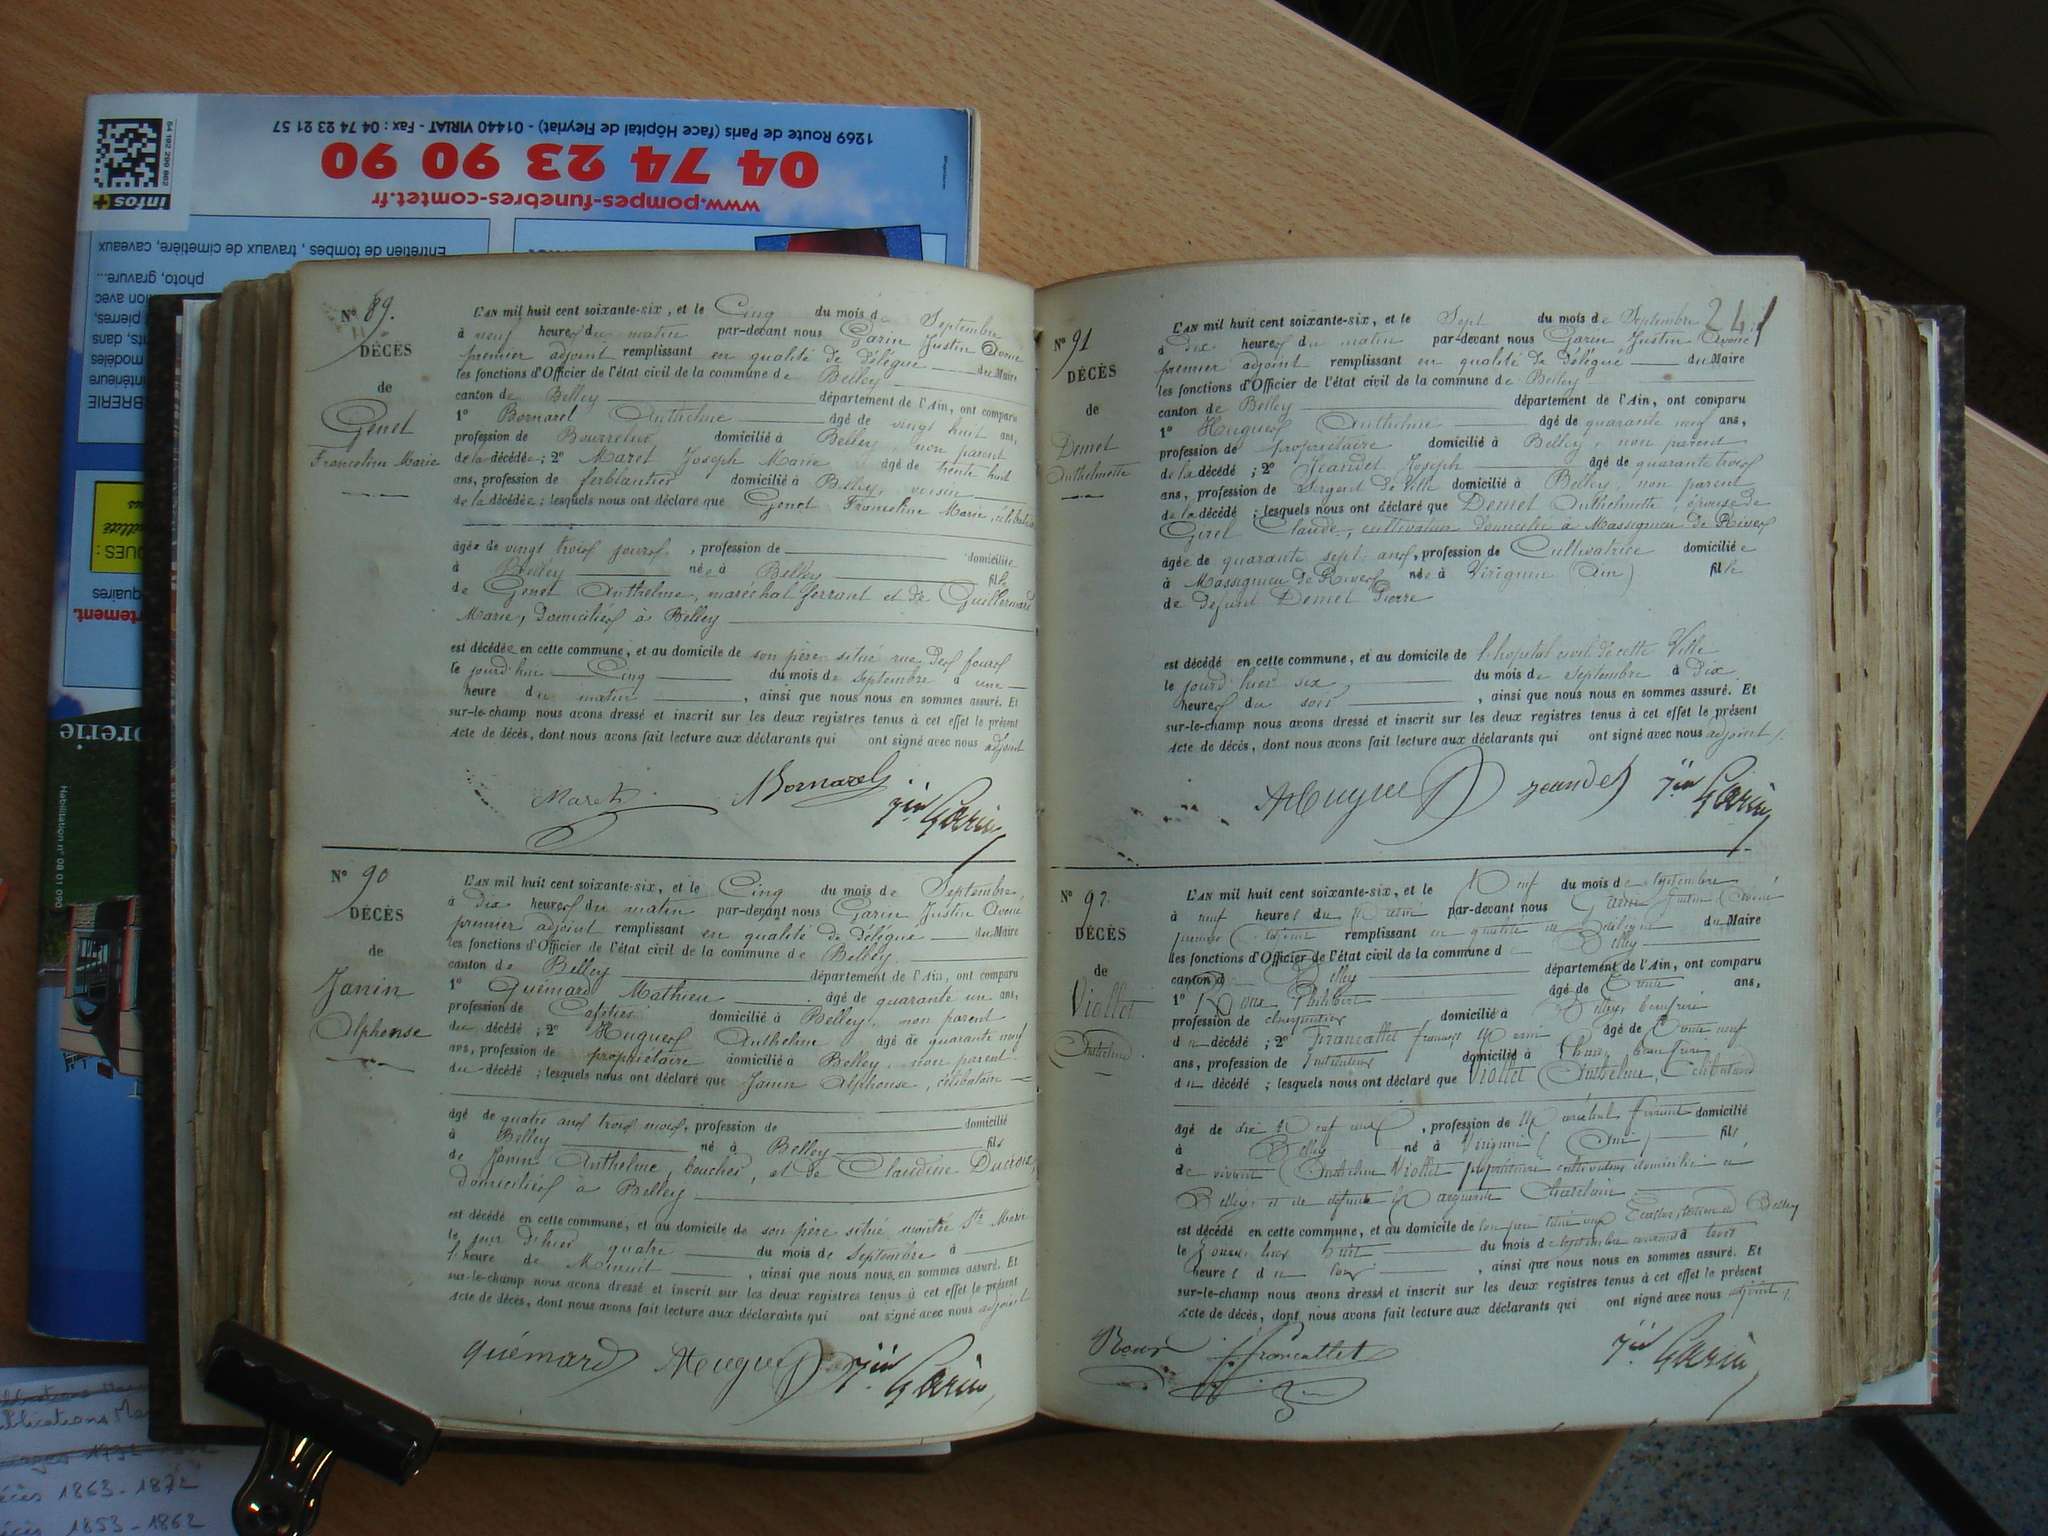 54 192 299 662
infos+
1269 Route de Paris (face Hôpital de Fleyriat) - 01440 VIRIAT - Fax : 04 74 23 21 57
04 74 23 90 90
www.pompes-funebres-comtet.fr
Entretien de tombes, travaux de cimetière, caveaux
photo, gravure...
Habilitation n° 08 01 090
N° 89.
DÉCÈS
de
Genet
Franceline Marie
L'AN mil huit cent soixante-six, et le Cinq du mois de Septembre
à neuf heures du matin par-devant nous Garin Justin Avoué
premier adjoint remplissant en qualité de délégué du Maire
les fonctions d'Officier de l'état civil de la commune de Belley
canton de Belley département de l'Ain, ont comparu
1° Bornarel Anthelme âgé de vingt huit ans,
profession de Bourrelier domicilié à Belley, non parent
de la décédée; 2° Maret Joseph Marie âgé de trente huit
ans, profession de ferblantier domicilié à Belley, voisin
de la décédée; lesquels nous ont déclaré que Genet Franceline Marie, célibataire
âgée de vingt trois jours, profession de domiciliée
à Belley née à Belley fille
de Genet Anthelme, maréchal ferrant et de Guillermard
Marie, domiciliés à Belley
est décédée en cette commune, et au domicile de son père situé rue des fours
le jourd'hui Cinq du mois de septembre à une
heure du matin, ainsi que nous nous en sommes assuré. Et
sur-le-champ nous avons dressé et inscrit sur les deux registres tenus à cet effet le présent
acte de décès, dont nous avons fait lecture aux déclarants qui ont signé avec nous adjoint
Maret Bornarel Jin Garin
N° 90
DÉCÈS
de
Janin
Alphonse
L'AN mil huit cent soixante-six, et le Cinq du mois de Septembre
à dix heures du matin par-devant nous Garin Justin Avoué
premier adjoint remplissant en qualité de délégué du Maire
les fonctions d'Officier de l'état civil de la commune de Belley
canton de Belley département de l'Ain, ont comparu
1° Quémard Mathieu âgé de quarante un ans,
profession de Cafetier domicilié à Belley, non parent
du décédé; 2° Hugues Anthelme âgé de quarante neuf
ans, profession de propriétaire domicilié à Belley, non parent
du décédé; lesquels nous ont déclaré que Janin Alphonse, célibataire
âgé de quatre ans trois mois, profession de domicilié
à Belley né à Belley fils
de Janin Anthelme, boucher, et de Claudine Ducroix,
domiciliés à Belley
est décédé en cette commune, et au domicile de son père situé montée Ste Marie
le jour d'hier quatre du mois de septembre à
l'heure de Minuit, ainsi que nous nous en sommes assuré. Et
sur-le-champ nous avons dressé et inscrit sur les deux registres tenus à cet effet le présent
acte de décès, dont nous avons fait lecture aux déclarants qui ont signé avec nous adjoint
quémard AHugues Jin Garin
241
N° 91
DÉCÈS
de
Demet
Anthelmette
L'AN mil huit cent soixante-six, et le Sept du mois de Septembre
à dix heures du matin par-devant nous Garin Justin Avoué
premier adjoint remplissant en qualité de délégué du Maire
les fonctions d'Officier de l'état civil de la commune de Belley
canton de Belley département de l'Ain, ont comparu
1° Hugues Anthelme âgé de quarante neuf ans,
profession de propriétaire domicilié à Belley, non parent
de la décédé; 2° Jeandet Joseph âgé de quarante trois
ans, profession de Sergent de Ville domicilié à Belley, non parent
de la décédé; lesquels nous ont déclaré que Demet Anthelmette, épouse de
Giret Claude, cultivateur domicilié à Massignieu de Rives
âgée de quarante sept ans, profession de Cultivatrice domiciliée
à Massignieu de Rives née à Virignin (Ain) fille
de défunt Demet Pierre
est décédé en cette commune, et au domicile de l'hopital civil de cette Ville
le jourd'hier six, du mois de septembre à dix
heures du soir, ainsi que nous nous en sommes assuré. Et
sur-le-champ nous avons dressé et inscrit sur les deux registres tenus à cet effet le présent
acte de décès, dont nous avons fait lecture aux déclarants qui ont signé avec nous adjoint
AHugues Jeandet Jin Garin
N° 92
DÉCÈS
de
Viollet
Anthelme
L'AN mil huit cent soixante-six, et le Neuf du mois de septembre
à neuf heures du Matin par-devant nous Garin Justin Avoué
premier Adjoint remplissant en qualité de Délégué du Maire
les fonctions d'Officier de l'état civil de la commune de Belley
canton d Belley département de l'Ain, ont comparu
1° Roux Philibert âgé de Trente ans,
profession de charpentier domicilié à Belley beaufrère
du décédé; 2° Francallet françois âgé de Trente neuf
ans, profession de Instituteur domicilié à beaufrère
du décédé; lesquels nous ont déclaré que Viollet Anthelme, Célibataire
âgé de dix Neuf ans, profession de Maréchal ferrant domicilié
à Belley né à Virignin (Ain) fils
de vivant Anthelme Viollet propriétaire cultivateur domicilié à
Belley, et de défunte Marguerite
est décédé en cette commune, et au domicile de son père situé aux Belley
le jour hier huit du mois de septembre courant à trois
heures du soir, ainsi que nous nous en sommes assuré. Et
sur-le-champ nous avons dressé et inscrit sur les deux registres tenus à cet effet le présent
acte de décès, dont nous avons fait lecture aux déclarants qui ont signé avec nous adjoint
Roux Francallet Jin Garin
1863 - 1872
1853 - 1862